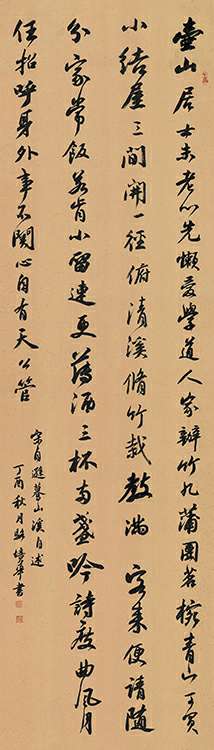 壺山居士未老心先懶愛學道人家辦竹几蒲團茗椀青山可買
小結屋三間開一徑俯清溪脩竹栽教滿客來便請隨
分家常飯若肯小留連更薄酒三杯兩盞吟詩度曲風月
任招呼身外事不關心自有天公管
宋自遜蓦山溪自述
丁酉秋月培華書